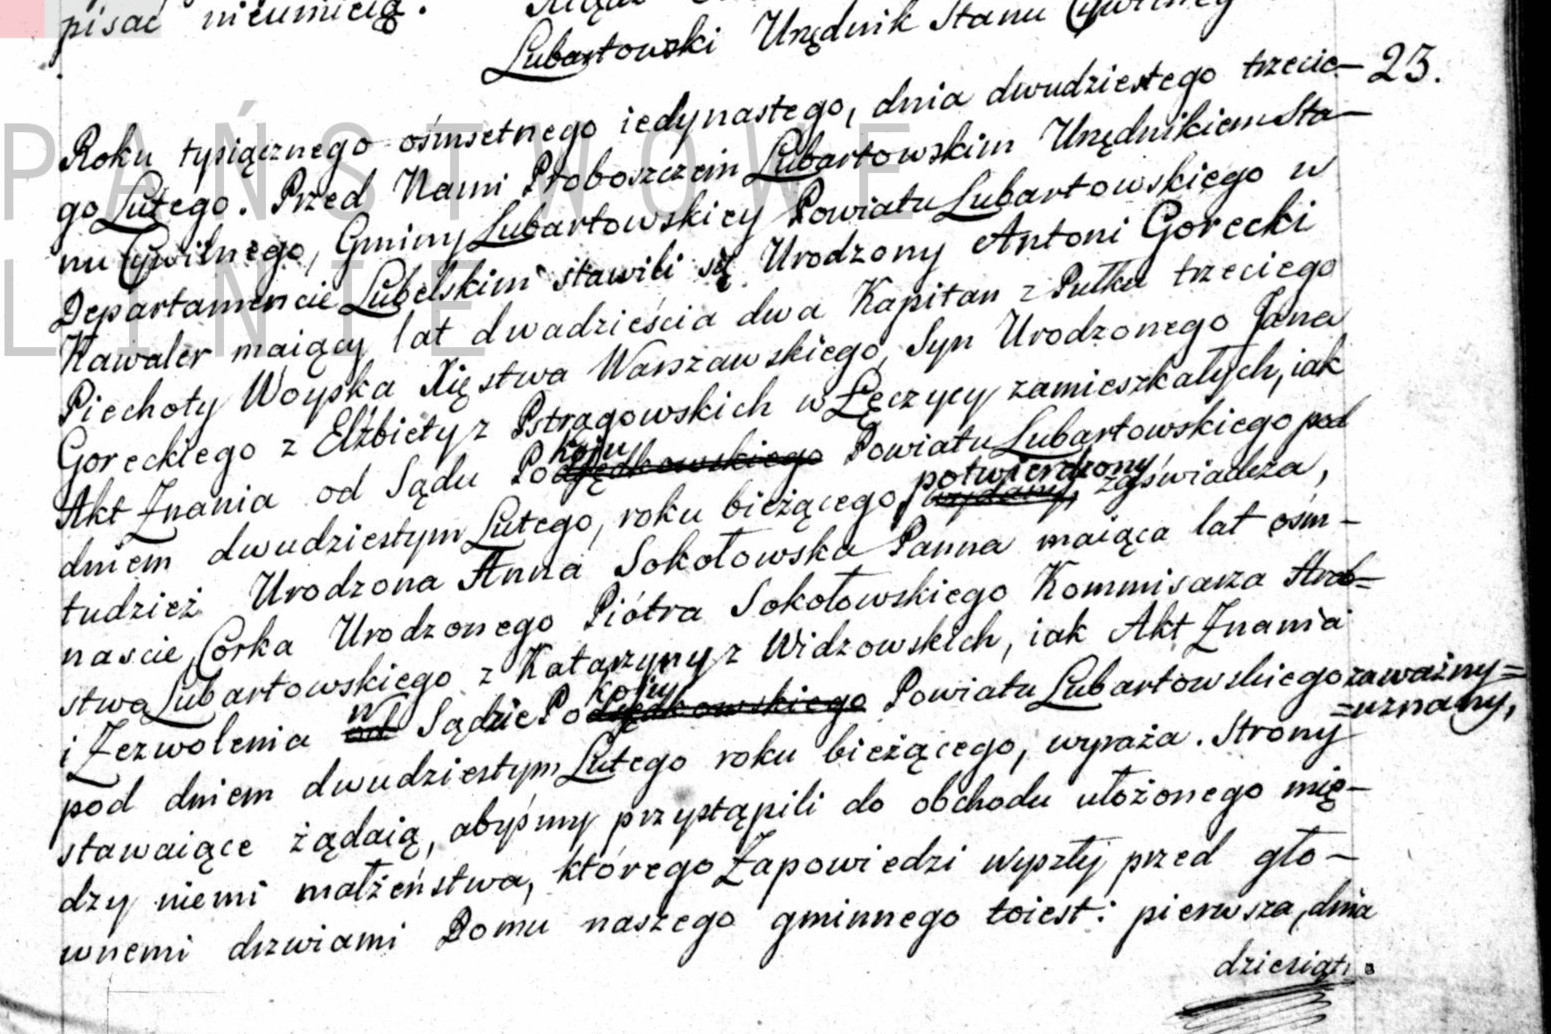 pisać nieumieią.
Lubartowski Urzędnik Stanu Cywilney
23.
Roku tysiącznego ośmsetnego iedynastego, dnia dwudziestego trzecie-
go Lutego. Przed Nami Proboszczem Lubartowskim Urzędnikiem Sta-
nu Cywilnego, Gminy Lubartowskiey Powiatu Lubartowskiego w
Departamencie Lubelskim stawili się Urodzony Antoni Gorecki
Kawaler maiący lat dwadzieścia dwa Kapitan z Pułku trzeciego
Piechoty Woyska Xięstwa Warszawskiego, Syn Urodzonego Jana
Goreckiego z Elżbiety z Pstrągowskich w Łęczycy zamieszkałych, iak
Akt Znania od Sądu Pokoju Powiatu Lubartowskiego pod
dniem dwudziestym Lutego, roku bieżącego potwierdzony zaświadcza,
tudzież Urodzona Anna Sokołowska Panna maiąca lat ośm-
nascie, Corka Urodzonego Piótra Sokołowskiego Kommisarza Hrab=
stwa Lubartowskiego z Katarzyny z Widzowskich, iak Akt Znania
i Zezwolenia w Sądzie Pokoju Powiatu Lubartowskiego za ważny=
=uznany,
pod dniem dwudziestym Lutego roku bieżącego, wyraża. Strony
stawaiące żądaią, abyśmy przystąpili do obchodu ułożonego mię-
dzy niemi małżeństwa, którego Zapowiedzi wyszły przed gło-
wnemi drzwiami Domu naszego gminnego toiest: pierwsza, dnia
dziesiąt.
PAŃSTWOWE
LINIE